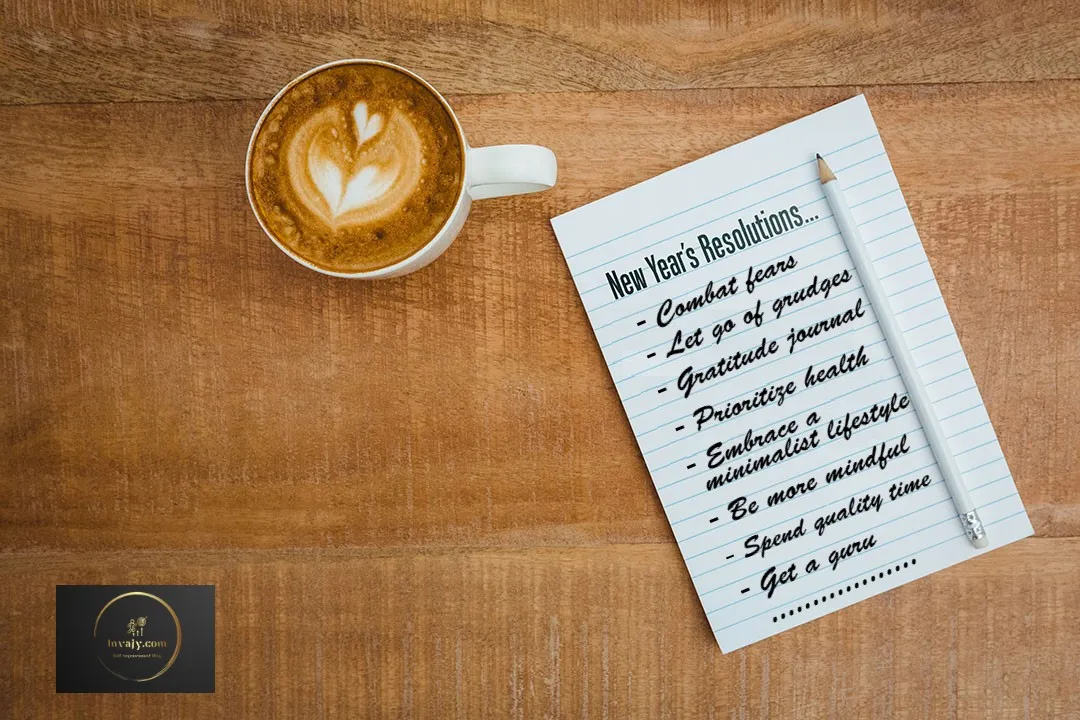 New Year's Resolutions...
- Combat fears
- Let go of grudges
- Gratitude journal
- Prioritize health
- Embrace a
minimalist lifestyle
- Be more mindful
- Spend quality time
- Get a guru
..................
invajy.com
Self Improvement Blog